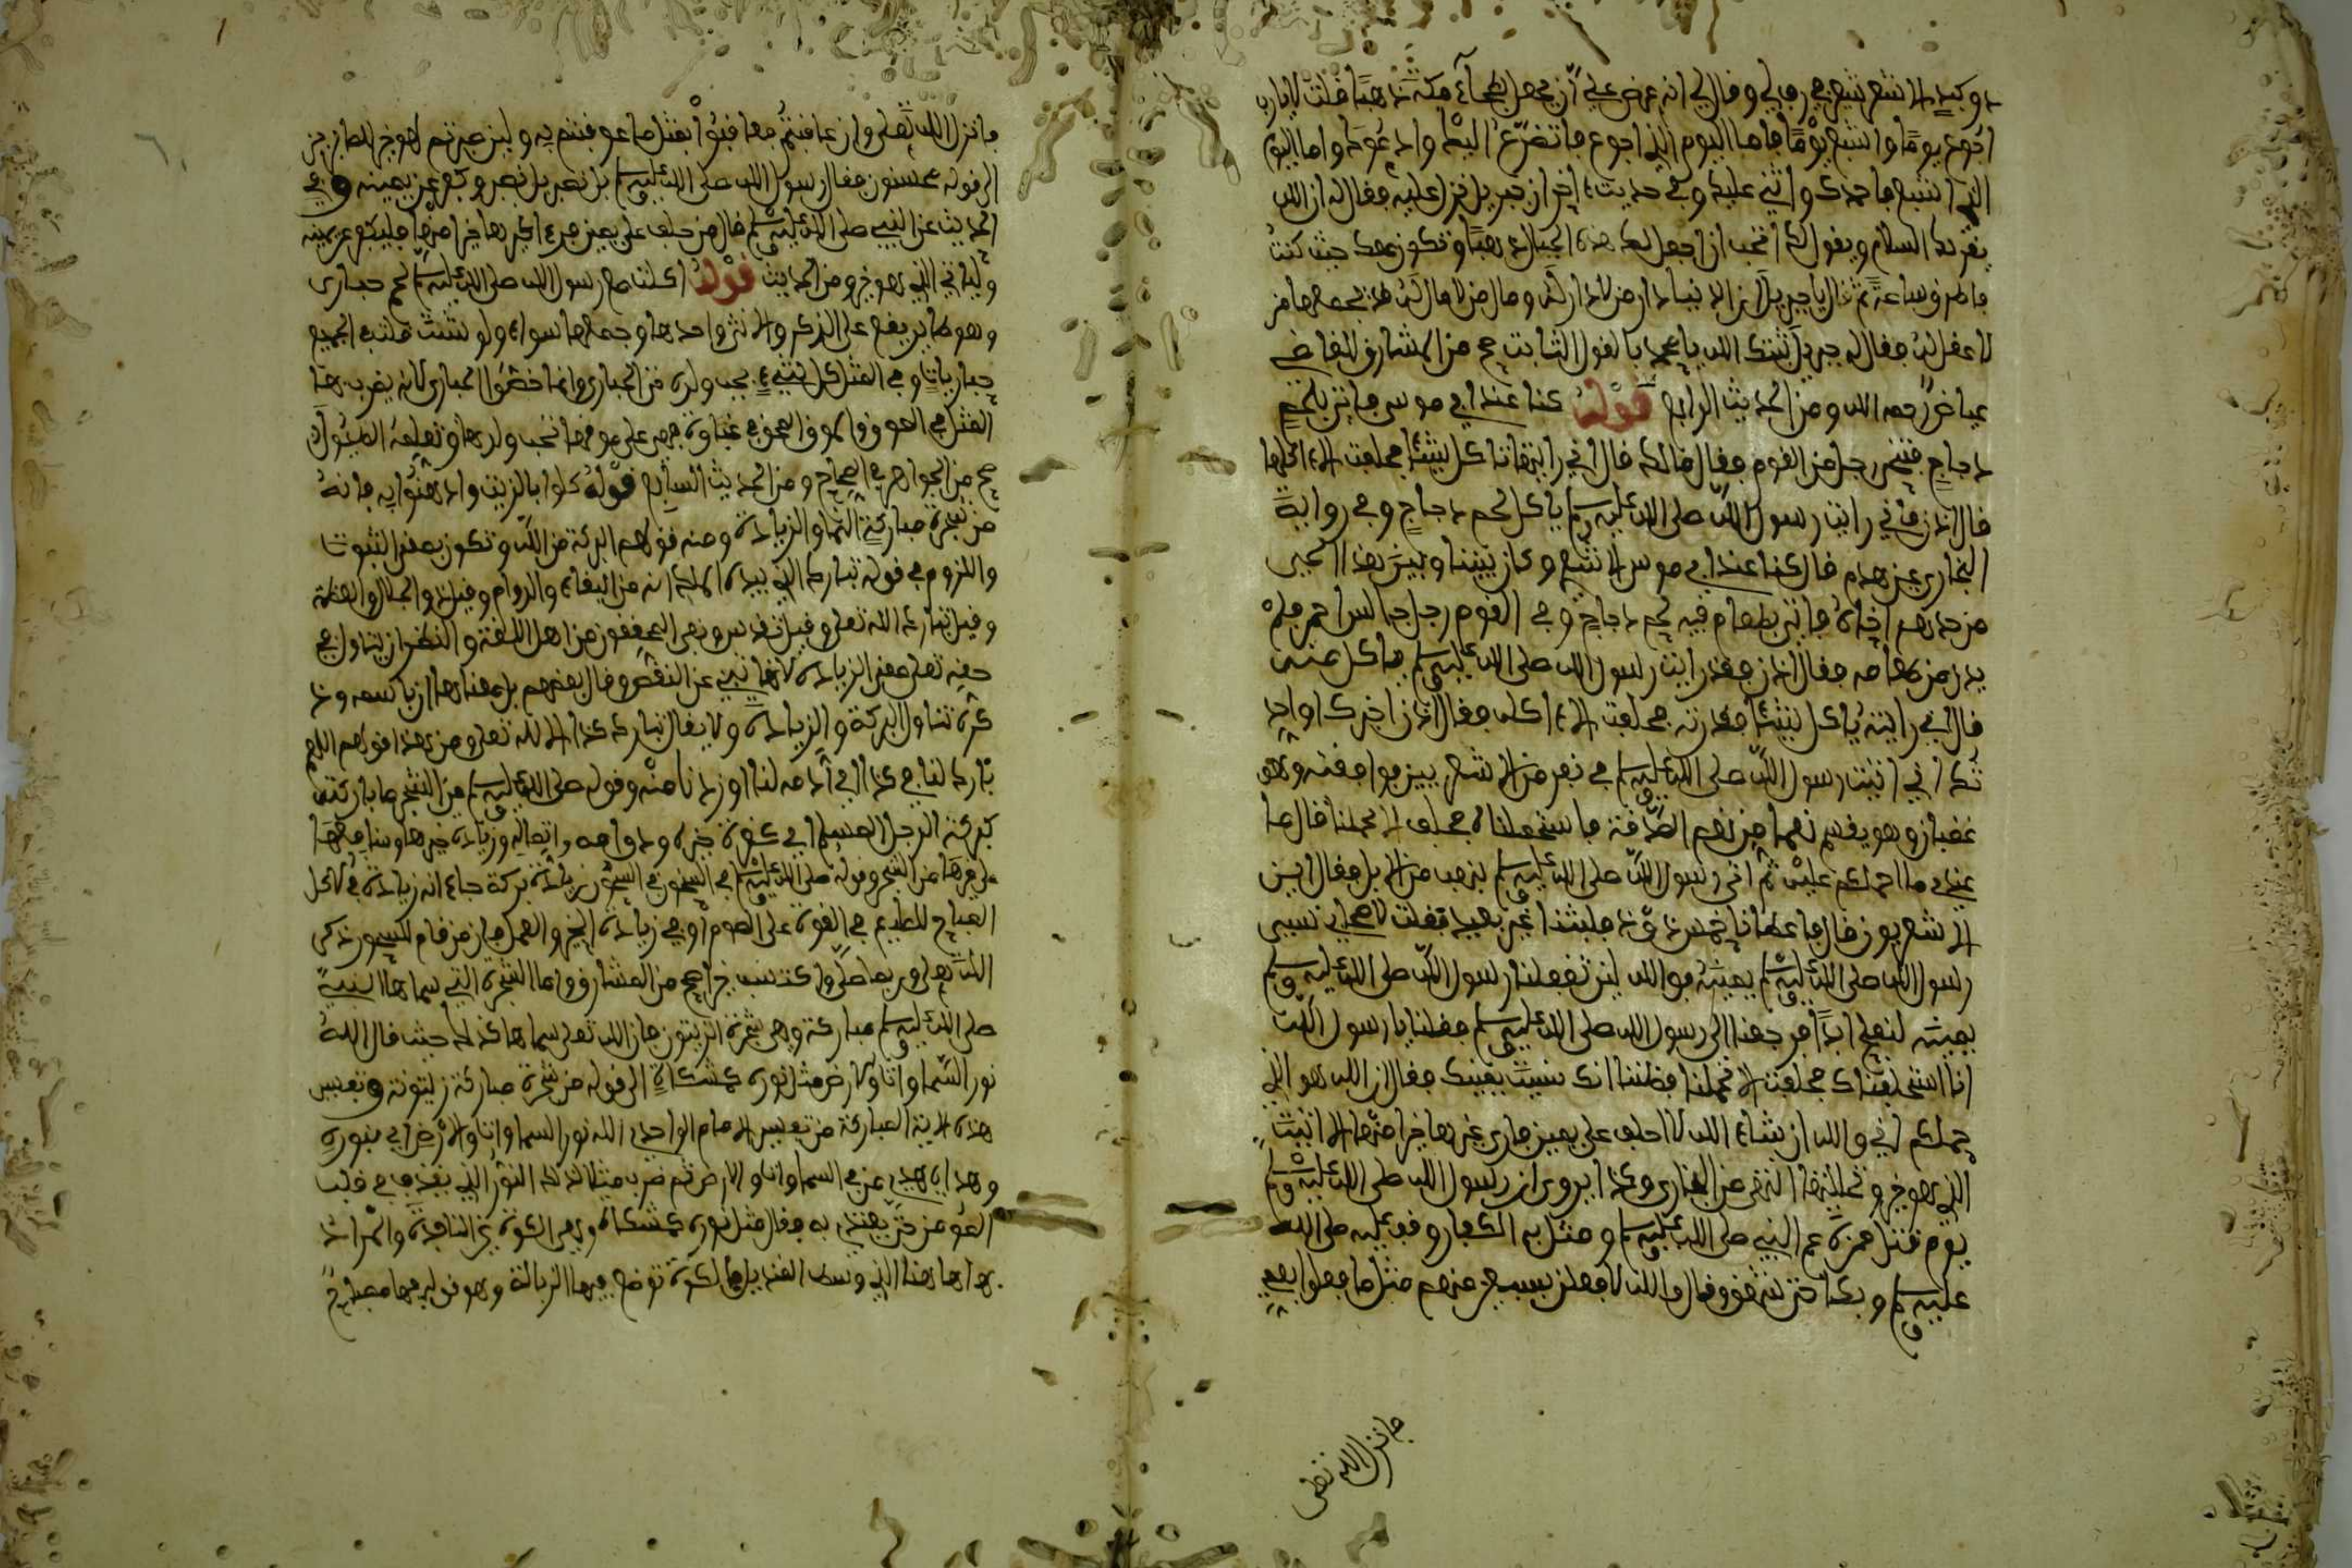 ذو كبد لا شعر شعير في رف لي وقال لي انه عرض علي ان يجعل لي بطحاء مكة ذهبا فقلت لا يا رب
اجوع يوما واشبع يوما فاما اليوم الذي اجوع فاتضرع اليك وادعوك واما اليوم
الذي اشبع فاحمدك واثني عليك وفي حديث اخر ان جبريل نزل عليه فقال له ان الله
يقرئك السلام ويقول لك اتحب ان اجعل لك هذه الجبال ذهبا وتكون معك حيث كنت
فاطرق ساعة ثم قال يا جبريل ان الدنيا دار من لا دار له ومال من لا مال له قد يجمعها من
لا عقل له فقال له جبريل ثبتك الله يا محمد بالقول الثابت صح من المشارق للقاضي
عياض رحمه الله ومن الحديث الرابع قوله كنا عند ابي موسى فاتي بلحم
دجاج فتنحى رجل من القوم فقال مالك قال اني رايتها تاكل شيئا فحلفت الا اكلها
قال ادن فاني رايت رسول الله صلى الله عليه وسلم ياكل لحم دجاج وفي رواية
البخاري عن زهدم قال كنا عند ابي موسى الاشعري وكان بيننا وبين هذا الحي
من جرم اخاء فاتي بطعام فيه لحم دجاج وفي القوم رجل جالس احمر فلم
يدن من طعامه فقال ادن فقد رايت رسول الله صلى الله عليه وسلم ياكل منه
قال اني رايته ياكل شيئا فقذرته فحلفت الا اكله فقال ادن اخبرك او احد
ثك اني اتيت رسول الله صلى الله عليه وسلم في نفر من الاشعريين فوافقته وهو
غضبان وهو يقسم نعما من نعم الصدقة فاستحملناه فحلف الا يحملنا قال ما
عندي ما احملكم عليه ثم اتي رسول الله صلى الله عليه وسلم بنهب من الابل فقال اين
الاشعريون قال فاعطانا خمس ذود فلبثنا غير بعيد فقلت لاصحابي نسي
رسول الله صلى الله عليه وسلم يمينه فوالله لئن تغفلنا رسول الله صلى الله عليه وسلم
يمينه لا نفلح ابدا فرجعنا الى رسول الله صلى الله عليه وسلم فقلنا يا رسول الله
انا استحملناك فحلفت الا تحملنا فظننا انك نسيت يمينك فقال ان الله هو الذي
حملكم اني والله ان شاء الله لا احلف على يمين فارى غيرها خيرا منها الا اتيت
الذي هو خير وتحللتها انتهى من البخاري وكذا يروى ان رسول الله صلى الله عليه وسلم
يوم قتل حمزة عم النبي صلى الله عليه وسلم ومثل به الكفار وقف عليه صلى الله
عليه وسلم وبكا حتى شهق وقال والله لافعلن بسبعين منهم مثل ما فعلوا بعمي
فانزل الله تعلى
فانزل الله تعلى وان عاقبتم فعاقبوا بمثل ما عوقبتم به ولئن صبرتم لهو خير للصابرين
الى قوله محسنون فقال رسول الله صلى الله عليه وسلم بل نصبر بل نصبر وكفر عن يمينه وفي
الحديث عن النبي صلى الله عليه وسلم قال من حلف على يمين فرءا غيرها خيرا منها فليكفر عن يمينه
ولياتي الذي هو خير ومن الحديث قوله اكلت مع رسول الله صلى الله عليه وسلم لحم حبارى
وهو طاير يقع على الذكر والانثى واحدها وجمعها سواء ولو شئت قلت في الجميع
حباريات وفي المثل كل شيء يحب ولده حتى الحبارى وانما خصوا الحبارى لانه يضرب بها
المثل في الموق فهي على موقها تحب ولدها وتعلمه الطيران
صح من الجواهر في الصحاح ومن الحديث السابع قوله كلوا بالزيت وادهنوا به فانه
من شجرة مباركة النما والزيادة ومنه قولهم البركة من الله وتكون بمعنى الثبوت
واللزوم في قوله تبارك الذي بيده الملك انه من البقاء والدوام وقيل من الجلال والعظمة
وقيل تبارك الله تعلى وقيل تقدس ونفى المحققون من اهل اللغة والنظر ان يتاول في
حقه تعلى معنى الزيادة لانها تنبي عن النقص وقال بعضهم بل معناها ان باسمه وذ
كره تنال البركة والزيادة ولا يقال تبارك كذا الا لله تعلى ومن هذا قولهم اللهم
بارك لنا في كذا اي ادمه لنا او زدنا منه وقوله صلى الله عليه وسلم من الشجر ما بركته
كبركة الرجل المسلم اي كثرة خيره ودوامه واتصاله وزيادة خيرها ومنافعها
على غيرها من الشجر وقوله صلى الله عليه وسلم في السحور بركة جاء انه زيادة في الاكل
المباح للطعم في القوة على الصوم او في زيادة الخير والعمل فان من قام للسحور ذكر
الله تعلى وربما صلى واكتسب خيرا صح من المشارق واما الشجرة التي سماها النبي
صلى الله عليه وسلم مباركة وهي شجرة الزيتون فان الله تعلى سماها كذلك حيث قال الله
نور السماوات والارض مثل نوره كمشكاة الى قوله من شجرة مباركة زيتونة وتفسير
هذه الاية المباركة من تفسير الامام الواحدي الله نور السماوات والارض اي بنوره
وهداه يهتدي من في السماوات والارض ثم ضرب مثلا لذلك النور الذي يقذفه في قلب
المومن حتى يهتدي به فقال مثل نوره كمشكاة وهي الكوة غير النافذة والمراد
بها هاهنا الذي وسط القنديل كالكوة توضع فيها الزبالة وهو قوله فيها مصباح